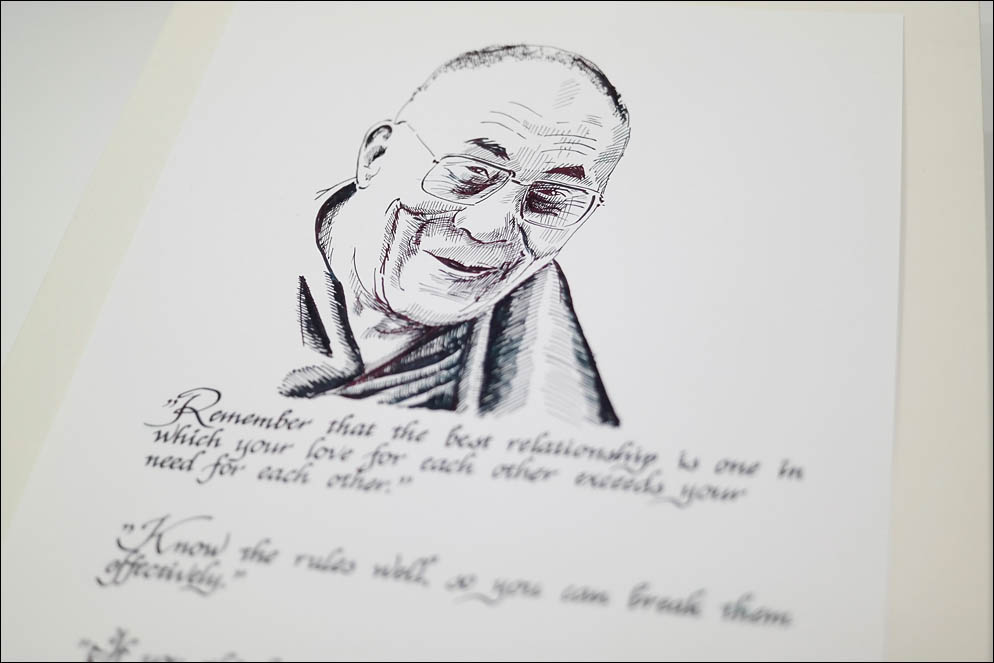 "Remember that the best relationship is one in
which your love for each other exceeds your
need for each other."
"Know the rules well, so you can break them
effectively."
"If you